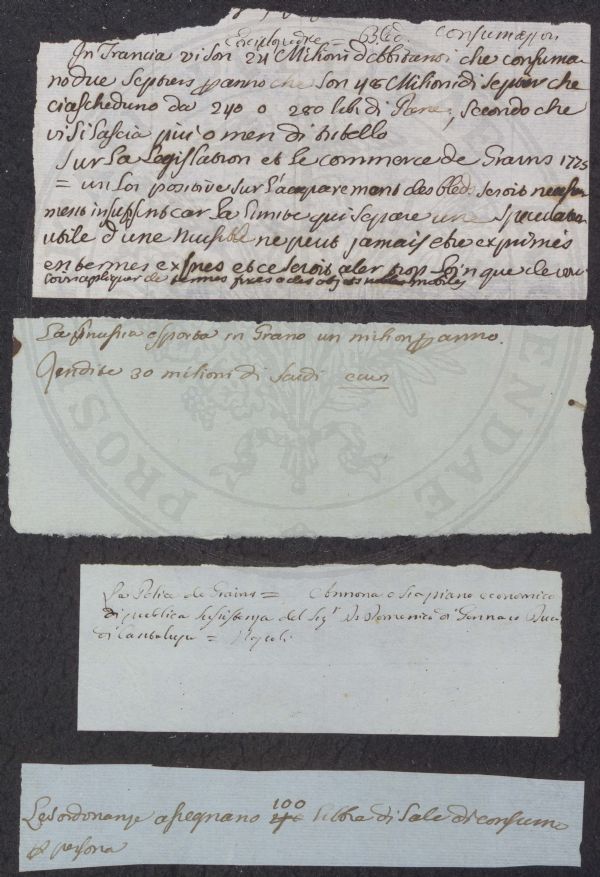 Enciclopedie = Bled. consumazion
In Francia vi son 24 Milioni d'abbitanti che consuma
no due septiers p anno che son 48 Milioni di septier che
ciascheduno da 240 o 280 lib. di Pane, secondo che
vi si lascia piu o men di tritello
Sur La Legislation et le commerce de Grains 1775
= un Loi positive sur l'accaparement des bleds seroit
ment insuffisent car la limite qui separe une speculation
utile d'une nuisible ne peut jamais etre exprimée
en termes expres et ce seroit aler trop loin que de vou
loir appliquer de termes fixes a des objets mobiles
La prussia esporta in Grano un milion p anno.
Rendite 30 milioni di Scudi
La Police de Grains = Annona o sia piano economico
di publica sussistenza del Sigr. D. Domenico di Gennaro Duca
di Cantalupo = Napoli
Les ordonanze assegnano 100 libbra di Sale di consumo
p persona
PROS
ENDAE